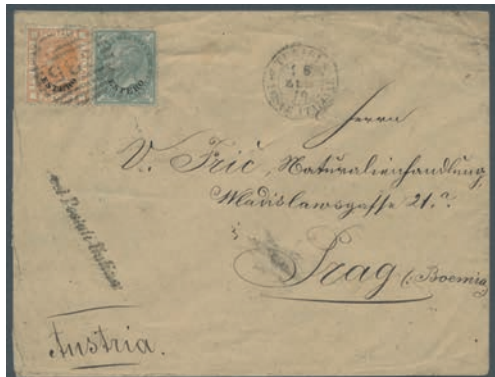 ESTERO
ESTERO
Herrn
V. Frič, Naturalienhandlung,
Wladislawsgasse 21.a
Prag (: Boemia
Postali Italiane
Austria.